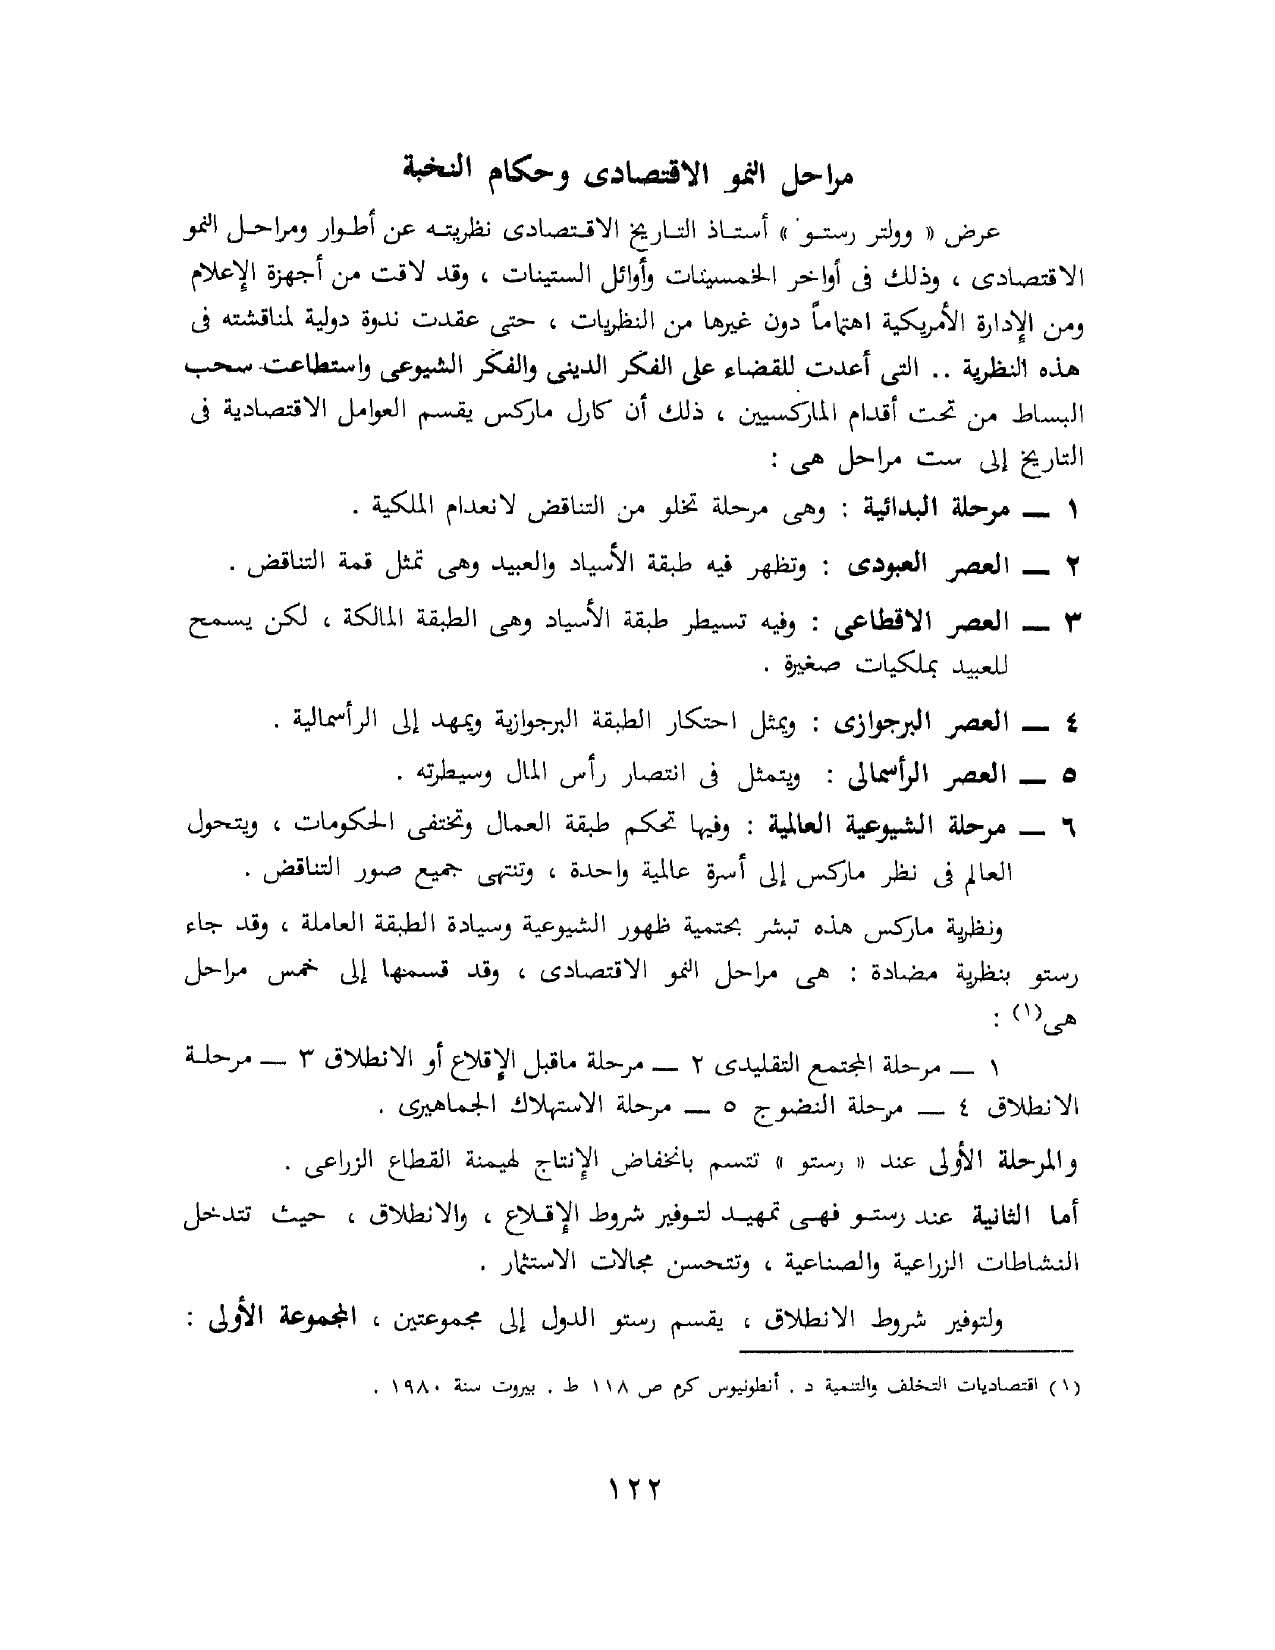 مراحل النمو الاقتصادى وحكام النخبة
عرض « وولتر رستو » أستاذ التاريخ الاقتصادى نظريته عن أطوار ومراحل النمو
الاقتصادى ، وذلك فى أواخر الخمسينات وأوائل الستينات ، وقد لاقت من أجهزة الإعلام
ومن الإدارة الأمريكية اهتماماً دون غيرها من النظريات ، حتى عقدت ندوة دولية لمناقشته فى
هذه النظرية .. التى أعدت للقضاء على الفكر الدينى والفكر الشيوعى واستطاعت سحب
البساط من تحت أقدام الماركسيين ، ذلك أن كارل ماركس يقسم العوامل الاقتصادية فى
التاريخ إلى ست مراحل هى :
١ ــ مرحلة البدائية : وهى مرحلة تخلو من التناقض لانعدام الملكية .
٢ ــ العصر العبودى : وتظهر فيه طبقة الأسياد والعبيد وهى تمثل قمة التناقض .
٣ ــ العصر الاقطاعى : وفيه تسيطر طبقة الأسياد وهى الطبقة المالكة ، لكن يسمح
للعبيد بملكيات صغيرة .
٤ ــ العصر البرجوازى : ويمثل احتكار الطبقة البرجوازية ويمهد إلى الرأسمالية .
٥ ــ العصر الرأسمالى : ويتمثل فى انتصار رأس المال وسيطرته .
٦ ــ مرحلة الشيوعية العالمية : وفيها تحكم طبقة العمال وتختفى الحكومات ، ويتحول
العالم فى نظر ماركس إلى أسرة عالمية واحدة ، وتنتهى جميع صور التناقض .
ونظرية ماركس هذه تبشر بحتمية ظهور الشيوعية وسيادة الطبقة العاملة ، وقد جاء
رستو بنظرية مضادة : هى مراحل النمو الاقتصادى ، وقد قسمها إلى خمس مراحل
هى(١) :
١ ــ مرحلة المجتمع التقليدى ٢ ــ مرحلة ماقبل الإقلاع أو الانطلاق ٣ ــ مرحلة
الانطلاق ٤ ــ مرحلة النضوج ٥ ــ مرحلة الاستهلاك الجماهيرى .
والمرحلة الأولى عند « رستو » تتسم بانخفاض الإنتاج لهيمنة القطاع الزراعى .
أما الثانية عند رستو فهى تمهيد لتوفير شروط الإقلاع ، والانطلاق ، حيث تتدخل
النشاطات الزراعية والصناعية ، وتتحسن مجالات الاستثمار .
ولتوفير شروط الانطلاق ، يقسم رستو الدول إلى مجموعتين ، المجموعة الأولى :
(١) اقتصاديات التخلف والتنمية د . أنطونيوس كرم ص ١١٨ ط . بيروت سنة ١٩٨٠ .
١٢٢